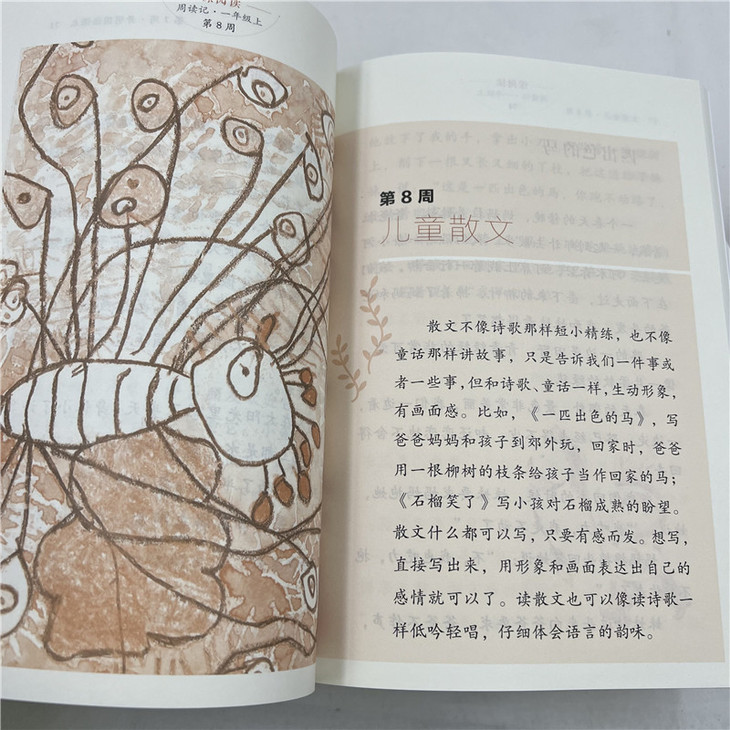 周读记·一年级上
第8周
第8周
儿童散文
散文不像诗歌那样短小精练，也不像
童话那样讲故事，只是告诉我们一件事或
者一些事，但和诗歌、童话一样，生动形象，
有画面感。比如，《一匹出色的马》，写
爸爸妈妈和孩子到郊外玩，回家时，爸爸
用一根柳树的枝条给孩子当作回家的马；
《石榴笑了》写小孩对石榴成熟的盼望。
散文什么都可以写，只要有感而发。想写，
直接写出来，用形象和画面表达出自己的
感情就可以了。读散文也可以像读诗歌一
样低吟轻唱，仔细体会语言的韵味。